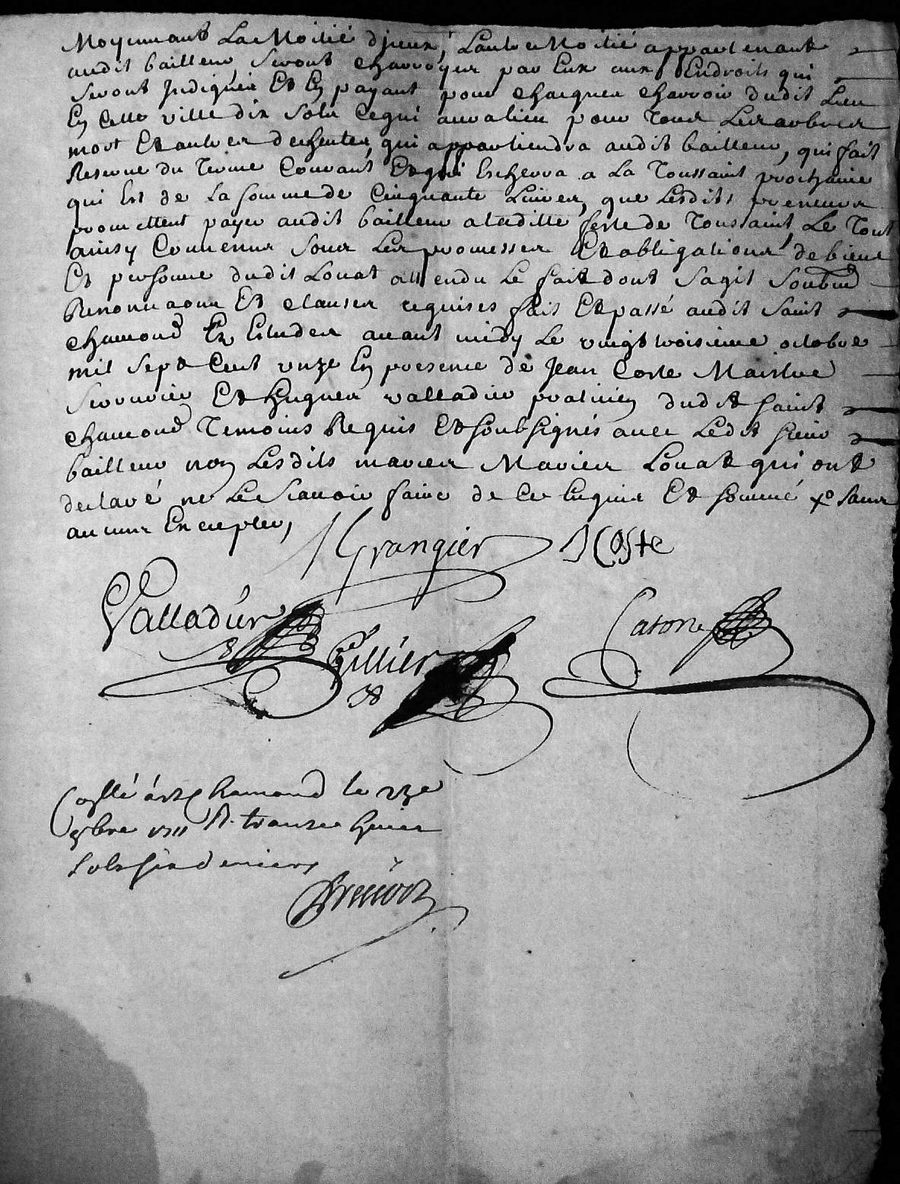 Moyennant La Moitié d'jceux, L'autre Moitié appartenant
audit bailleur seront charroyer par Eux aux Endroits qui
seront Jndiqués Et En payant pour chacquer charroir dudit Lieu
En cette ville dix sols Cequi aura lieu pour Tour Ler arbrer
mort Et autrer decheuter, qui appartiendra audit bailleur, qui fait
Reserue du Terme Courant Et qui Escherra a La Toussaint prochaine
qui Est de La somme de Cinquante Liurer, que Lesdits preneurs
promettent payer audit bailleur a laditte feste de Toussaint, Le Tout
ainsy Conuenu sour Les promesser Et obligations de bienr
Et personne dudit Louat attendu Le fait dont s'agit soubm
Renonciaonr Et clauser requises fait Et passé audit saint
chamond Ez Etuder auant midy Le vingt troisieme octobre
mil sept Cent vnze En presence de Jean Coste Maistre
serrurier Et huguer valladier praticien dudit saint
chamond Temoins Requis Et soubsignés auec Ledit sieur
bailleur non Lesdits marier Marier Louat qui ont
declaré ne Le scauoir faire de ce Enquis Et sommé
aucuns Encepter,
J Grangier J Coste
Valladier
Gillier
Catone
Collé à St Chamond le 23e
8bre 1711 R. trante
sols six deniers